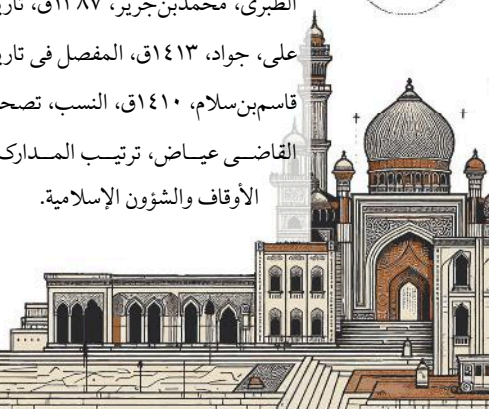 الطبری، محمدبن‌جریر، ۱۳۸۷ق، تاری
علی، جواد، ۱٤۱۳ق، المفصل فی تاری
قاسم‌بن‌سلام، ۱٤۱۰ق، النسب، تصح
القاضی عیاض، ترتیب المدارک
الأوقاف والشؤون الإسلامیة.